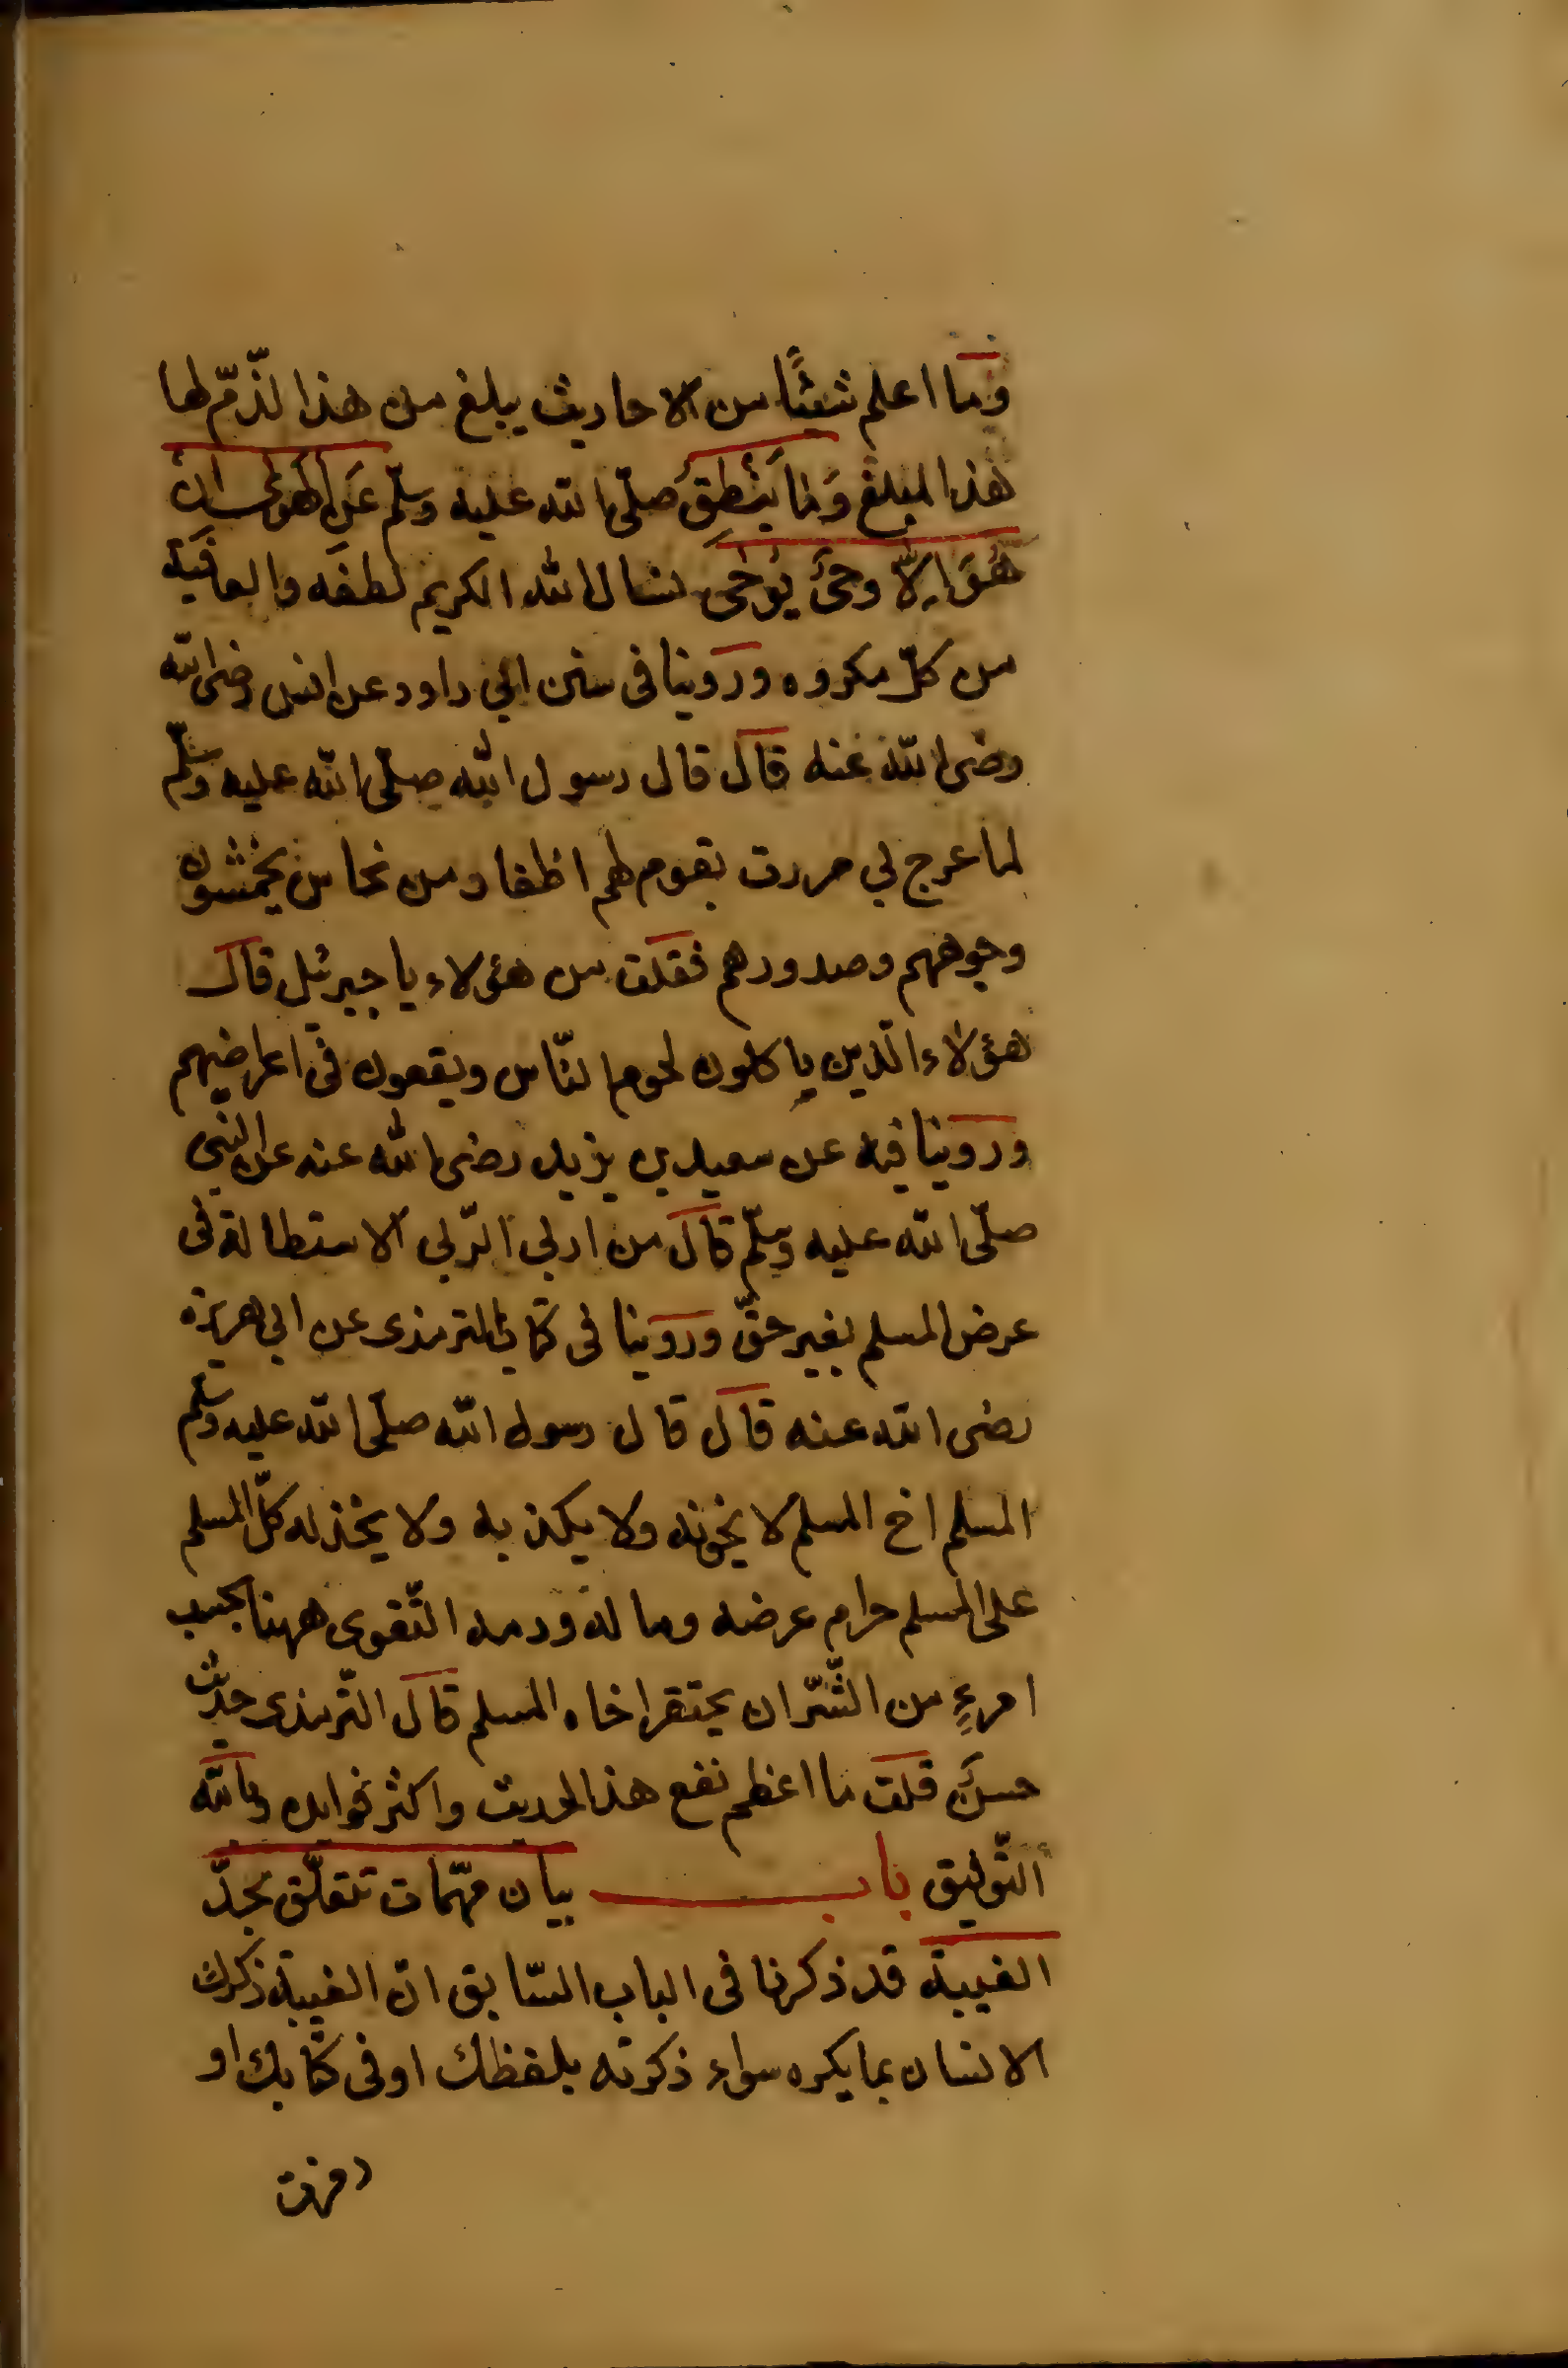 وَما اعلم شيئًا من الاحاديث يبلغ من هذا الذّمّ لها
هذا المبلغ وَمَا يَنْطِقُ صلّى الله عليه وسلّم عَنِ الْهَوٰى اِنْ
هُوَ اِلاَّ وحىٌ يُوحٰى نسال الله الكريم لطفه والعافية
من كلّ مكروه وروينا فى سنن ابي داود عن انس رضى الله
رضى الله عنه قال قال رسول الله صلّى الله عليه وسلّم
لما عرج بي مررت بقوم لهم اظفار من نحاس يخمشون
وجوههم وصدورهم فقلت من هؤلاء يا جبرئيل قال
هؤلاء الّذين ياكلون لحوم النّاس ويقعون فى اعراضهم
وروينا فيه عن سعيد بن يزيد رضى الله عنه عن النبي
صلّى الله عليه وسلّم قال من اربى الرّبى الاستطالة فى
عرض المسلم بغير حقّ وروينا فى كتاب الترمذى عن ابى هريرة
رضى الله عنه قال قال رسول الله صلّى الله عليه وسلّم
المسلم اخ المسلم لا يخونه ولا يكذبه ولا يخذله كلّ المسلم
على المسلم حرام عرضه وماله ودمه التّقوى ههنا بحسب
امرءٍ من الشّرّ ان يحتقر اخاه المسلم قال التّرمذى حديث
حسن قلت ما اعظم نفع هذا الحديث واكثر فوايده وبالله
التّوفيق باب بيان مهمّات تتعلّق بحدّ
الغيبة قد ذكرنا فى الباب السّابق انّ الغيبة ذكرك
الانسان بما يكره سواء ذكرته بلفظك او فى كتابك او
رمزت